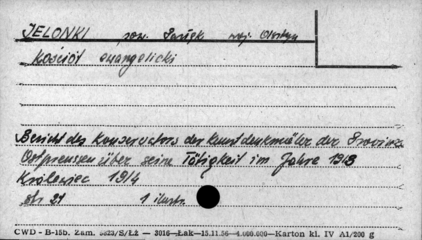 JELONKI pow. Pasłęk woj. Olsztyn
Kościół ewangelicki
Bericht des Konservators der Kunstdenkmäler der Provinz
Ostpreussen über seine Tätigkeit im Jahre 1913
Królewiec 1914
str. 21 1 ilustr.
CWD - B-15b. Zam. 5523/S/Łż — 3016—Łak—15.11.56—4.000.000—Karton kl. IV A1/200 g